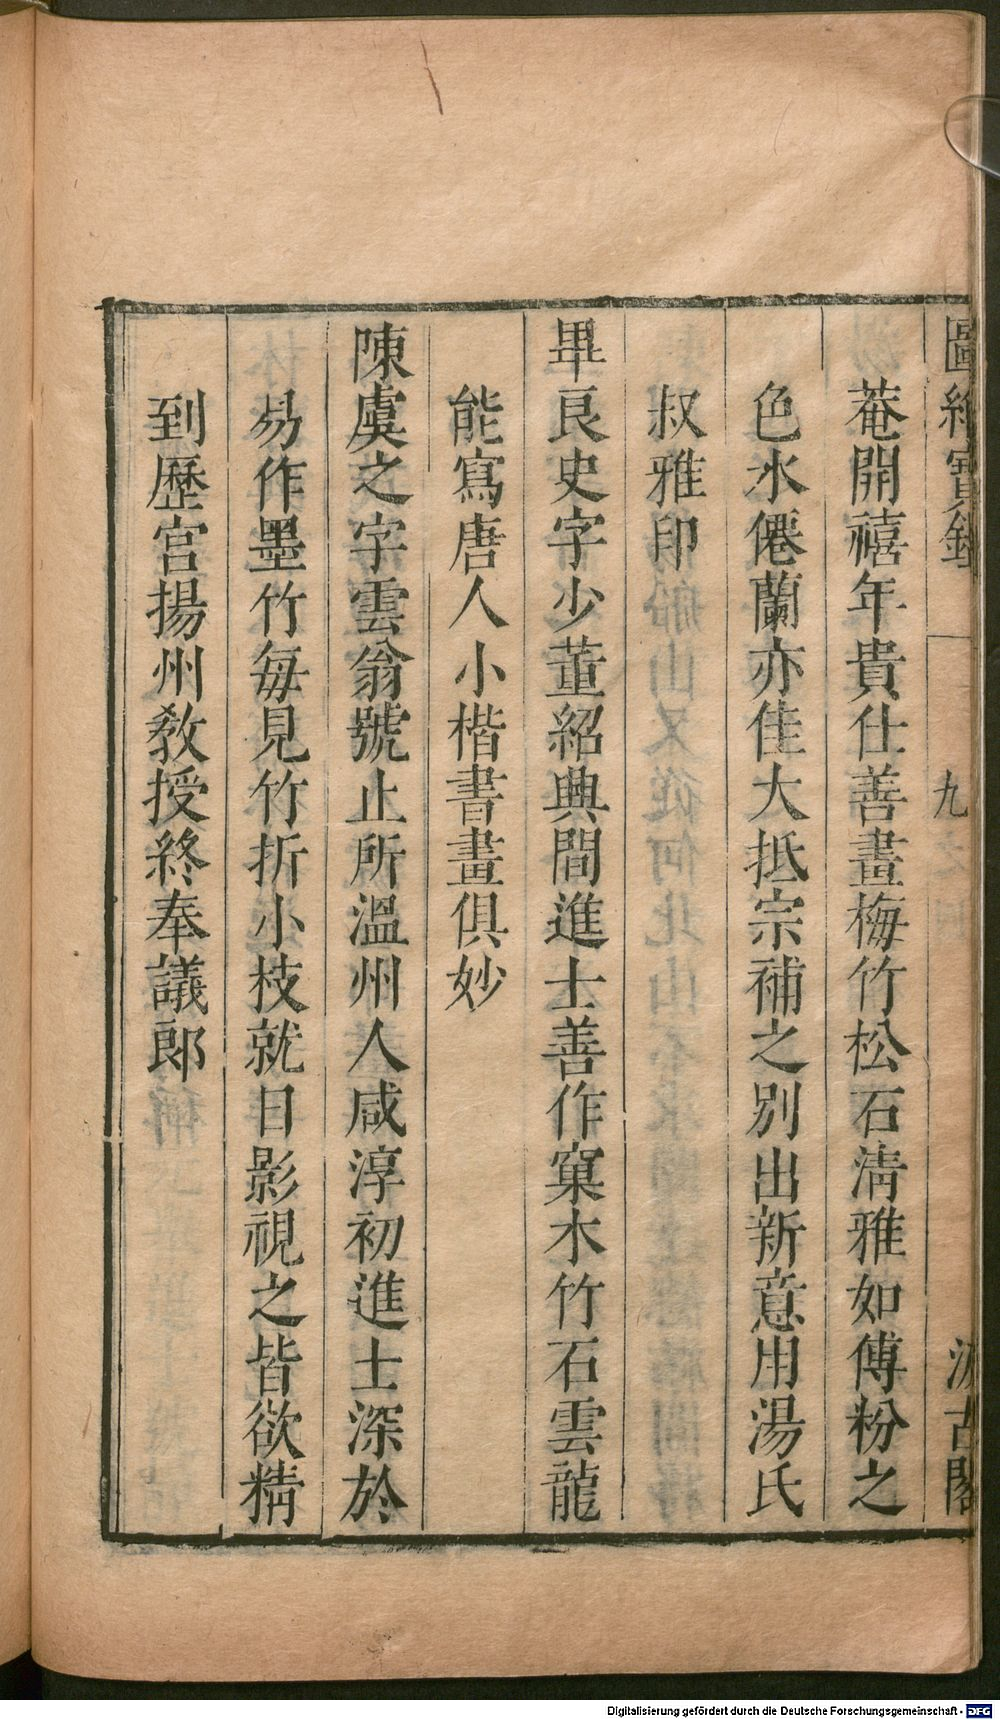 圖繪寶鑑
九
汲古閣
菴開禧年貴仕善畫梅竹松石淸雅如傅粉之
色水僊蘭亦佳大抵宗補之別出新意用湯氏
叔雅印
畢良史字少董紹興間進士善作窠木竹石雲龍
能寫唐人小楷書畫俱妙
陳虞之字雲翁號止所溫州人咸淳初進士深於
易作墨竹每見竹折小枝就日影視之皆欲精
到歷官揚州敎授終奉議郎
Digitalisierung gefördert durch die Deutsche Forschungsgemeinschaft - DFG